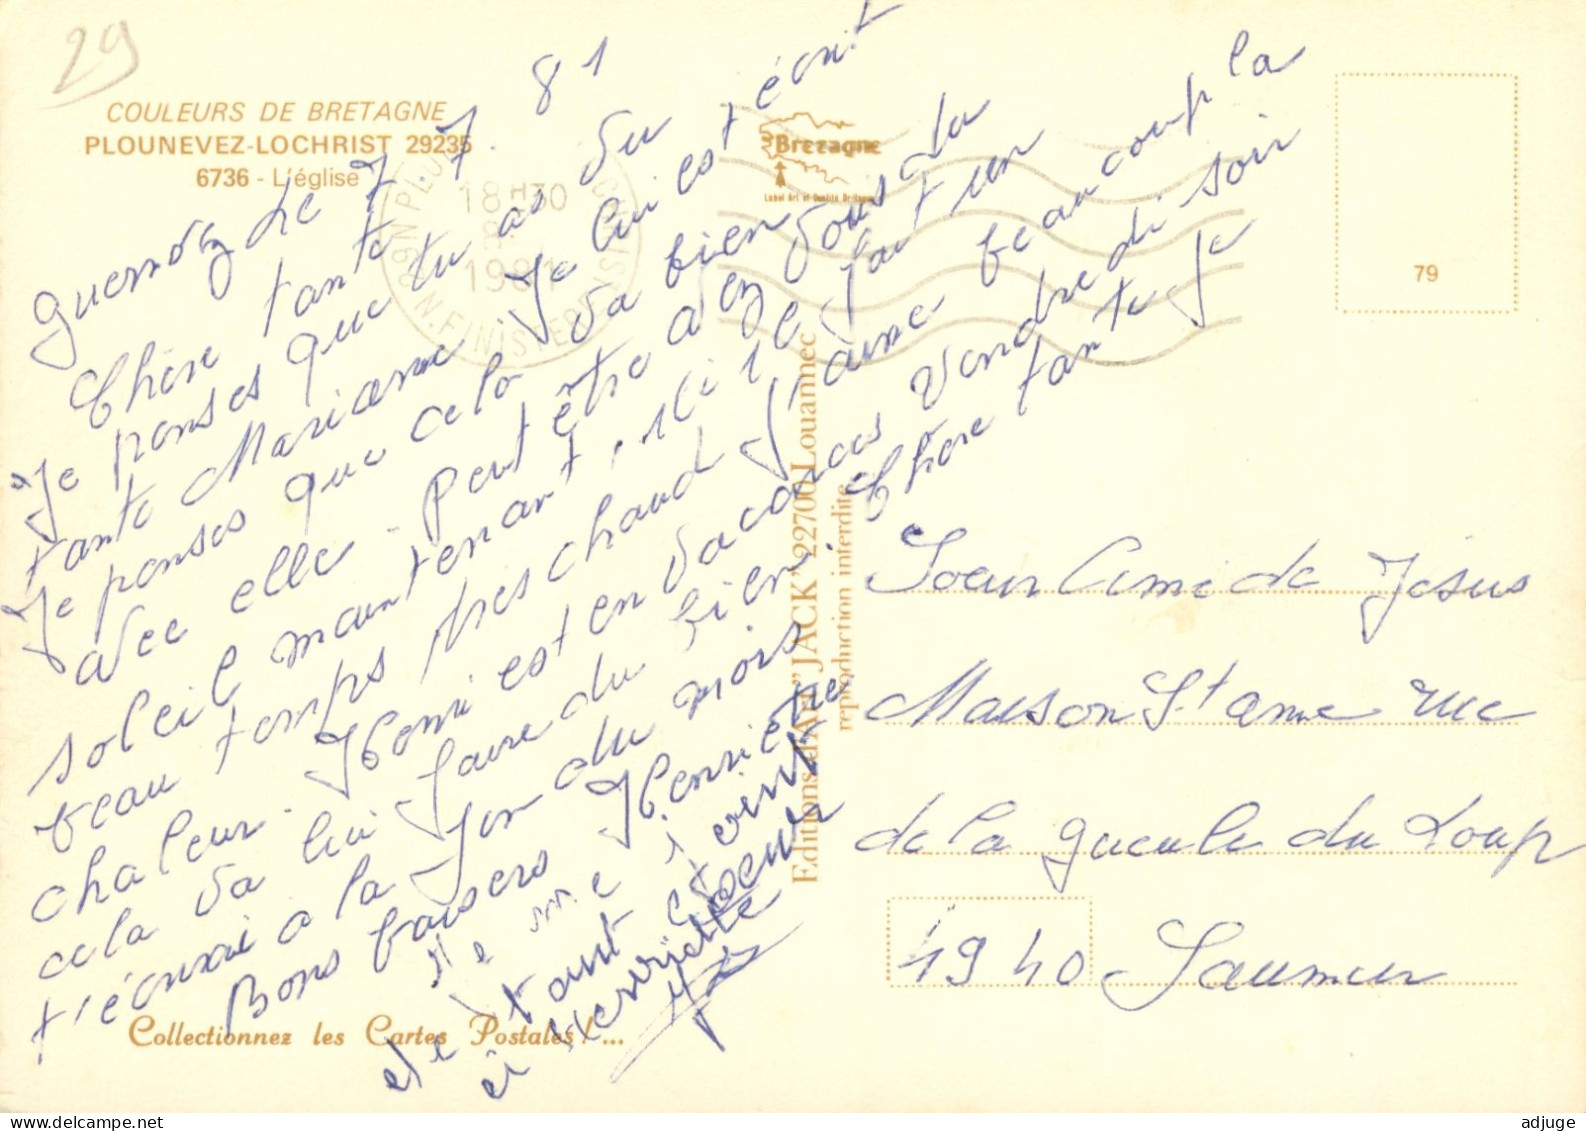 29
COULEURS DE BRETAGNE
PLOUNEVEZ-LOCHRIST 29235
6736 - L'église
18 H 30
1981
N. FINISTERE
Bretagne
Label Art et Qualité Bretagne
79
le 7 7 81
Chère tante
Je penses que tu as du
tante Marianne Je lui est écrit
Je penses que cela va bien
avec elle. Peut être avez vous du
soleil maintenant, ici il fait un
beau temps très chaud J'aime beaucoup la
chaleur. Henri est en vacances Vendredi soir
cela va lui faire du bien. Chère tante Je
t'écrirai a la fin du mois
Bons baisers Henriette
Editions d'Art "JACK" 22700 Louannec
reproduction interdite
Soeur Aimé de Jésus
Maison St anne rue
de la gueule du Loup
49 40 Saumur
Collectionnez les Cartes Postales !...
adjuge